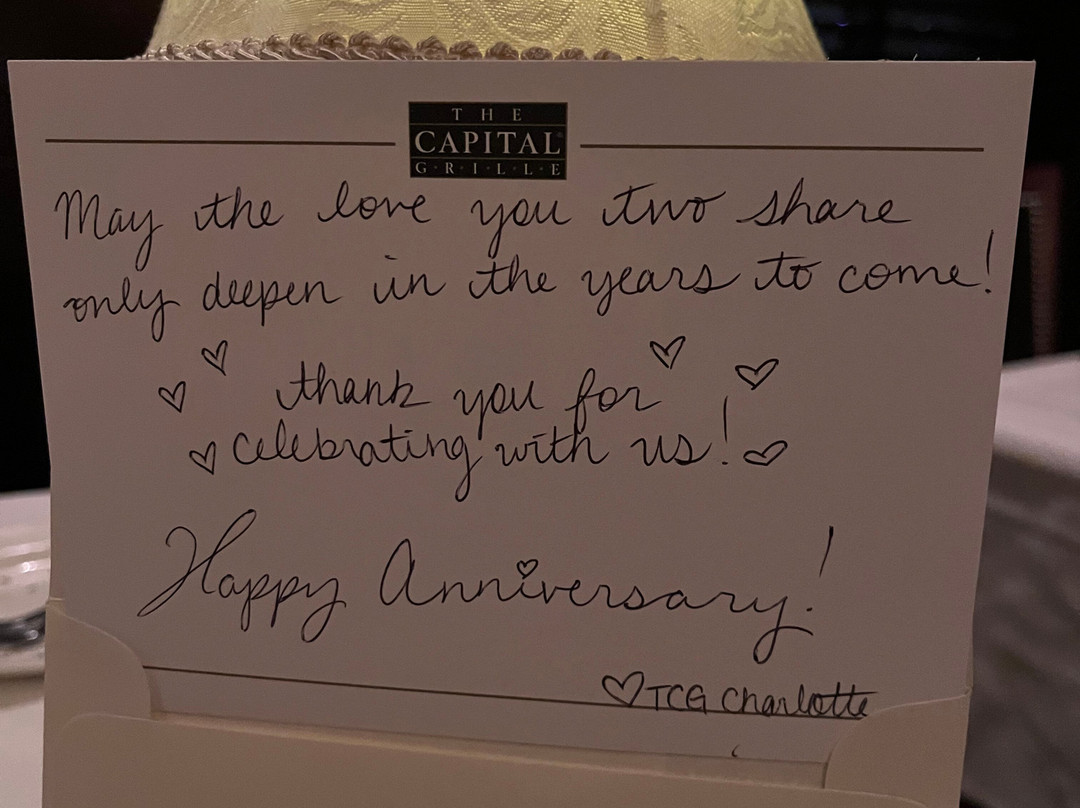 THE
CAPITAL
G·R·I·L·L·E
May the love you two share
only deepen in the years to come!
thank you for
celebrating with us!
Happy Anniversary!
♡TCG Charlotte